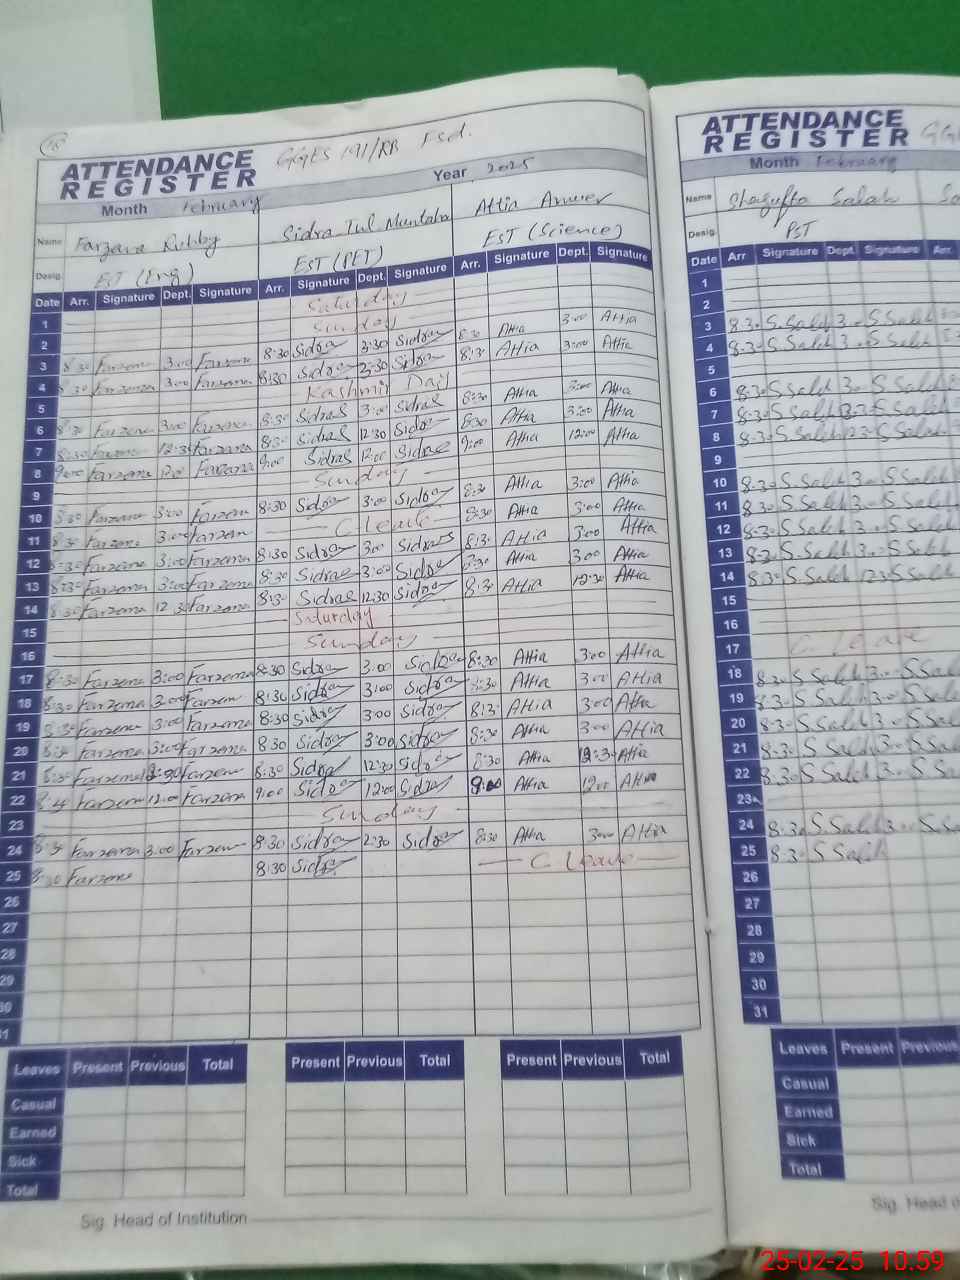 ATTENDANCE REGISTER GGES 191/RB Fsd.
Month February Year 2025
Name Farzana Rubby Sidra Tul Muntaha Attia Anwer
Desig. EST (Eng) EST (PET) EST (Science)
Date Arr. Signature Dept. Signature Arr. Signature Dept. Signature Arr. Signature Dept. Signature
1 Saturday
2 Sunday
3 8:30 Farzana 3:00 Farzana 8:30 Sidra 3:30 Sidra 8:30 Attia 3:00 Attia
4 8:30 Farzana 3:00 Farzana 8:30 Sidra 2:30 Sidra 8:30 Attia 3:00 Attia
5 Kashmir Day
6 8:30 Farzana 3:00 Farzana 8:30 Sidra 3:00 Sidra 8:30 Attia 3:00 Attia
7 8:30 Farzana 12:30 Farzana 8:30 Sidra 12:30 Sidra 8:30 Attia 3:00 Attia
8 9:00 Farzana 12:00 Farzana 9:00 Sidra 12:00 Sidra 9:00 Attia 12:00 Attia
9 Sunday
10 8:30 Farzana 3:00 Farzana 8:30 Sidra 3:00 Sidra 8:30 Attia 3:00 Attia
11 8:30 Farzana 3:00 Farzana C. Leave 8:30 Attia 3:00 Attia
12 8:30 Farzana 3:00 Farzana 8:30 Sidra 3:00 Sidra 8:30 Attia 3:00 Attia
13 8:30 Farzana 3:00 Farzana 8:30 Sidra 3:00 Sidra 8:30 Attia 3:00 Attia
14 8:30 Farzana 12:30 Farzana 8:30 Sidra 12:30 Sidra 8:30 Attia 12:30 Attia
15 Saturday
16 Sunday
17 8:30 Farzana 3:00 Farzana 8:30 Sidra 3:00 Sidra 8:30 Attia 3:00 Attia
18 8:30 Farzana 3:00 Farzana 8:30 Sidra 3:00 Sidra 8:30 Attia 3:00 Attia
19 8:30 Farzana 3:00 Farzana 8:30 Sidra 3:00 Sidra 8:30 Attia 3:00 Attia
20 8:30 Farzana 3:00 Farzana 8:30 Sidra 3:00 Sidra 8:30 Attia 3:00 Attia
21 8:30 Farzana 12:30 Farzana 8:30 Sidra 12:30 Sidra 8:30 Attia 12:30 Attia
22 Farzana 12:00 Farzana 9:00 Sidra 12:00 Sidra 9:00 Attia 12:00 Attia
23 Sunday
24 8:30 Farzana 3:00 Farzana 8:30 Sidra 2:30 Sidra 8:30 Attia 3:00 Attia
25 8:30 Farzana 8:30 Sidra C. Leave
26
27
28
29
30
31
Leaves Present Previous Total Present Previous Total Present Previous Total
Casual
Earned
Sick
Total
Sig. Head of Institution
ATTENDANCE REGISTER
Month February
Name Shagufta Salah
Desig. PST
Date Arr Signature Dept. Signature Arr.
1
2
3 8:30 S.Salah 3:00 S.Salah
4 8:30 S.Salah 3:00 S.Salah
5
6 8:30 S.Salah 3:00 S.Salah
7 8:30 S.Salah S.Salah
8 8:30 S.Salah S.Salah
9
10 8:30 S.Salah 3:00 S.Salah
11 8:30 S.Salah 3:00 S.Salah
12 8:30 S.Salah 3:00 S.Salah
13 8:30 S.Salah 3:00 S.Salah
14 8:30 S.Salah 12:30 S.Salah
15
16
17 C. Leave
18 8:30 S.Salah 3:00 S.Salah
19 8:30 S.Salah 3:00 S.Salah
20 8:30 S.Salah 3:00 S.Salah
21 8:30 S Salah S.Salah
22 8:30 S.Salah S.Salah
23
24 8:30 S.Salah 3:00 S.Salah
25 8:30 S Salah
26
27
28
29
30
31
Leaves Present Previous
Casual
Earned
Sick
Total
Sig. Head
25-02-25 10.59